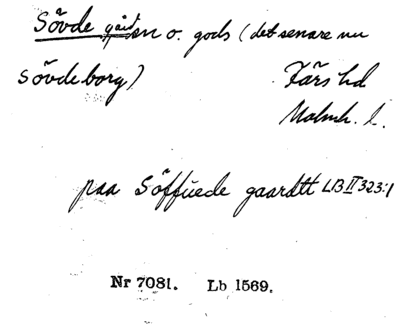 Sövde gården o. gods (det senare nu
Sövdeborg) Färs hd
Malmh. l.
paa Söffuede gaardtt LB II 323:1
Nr 7081. Lb 1569.